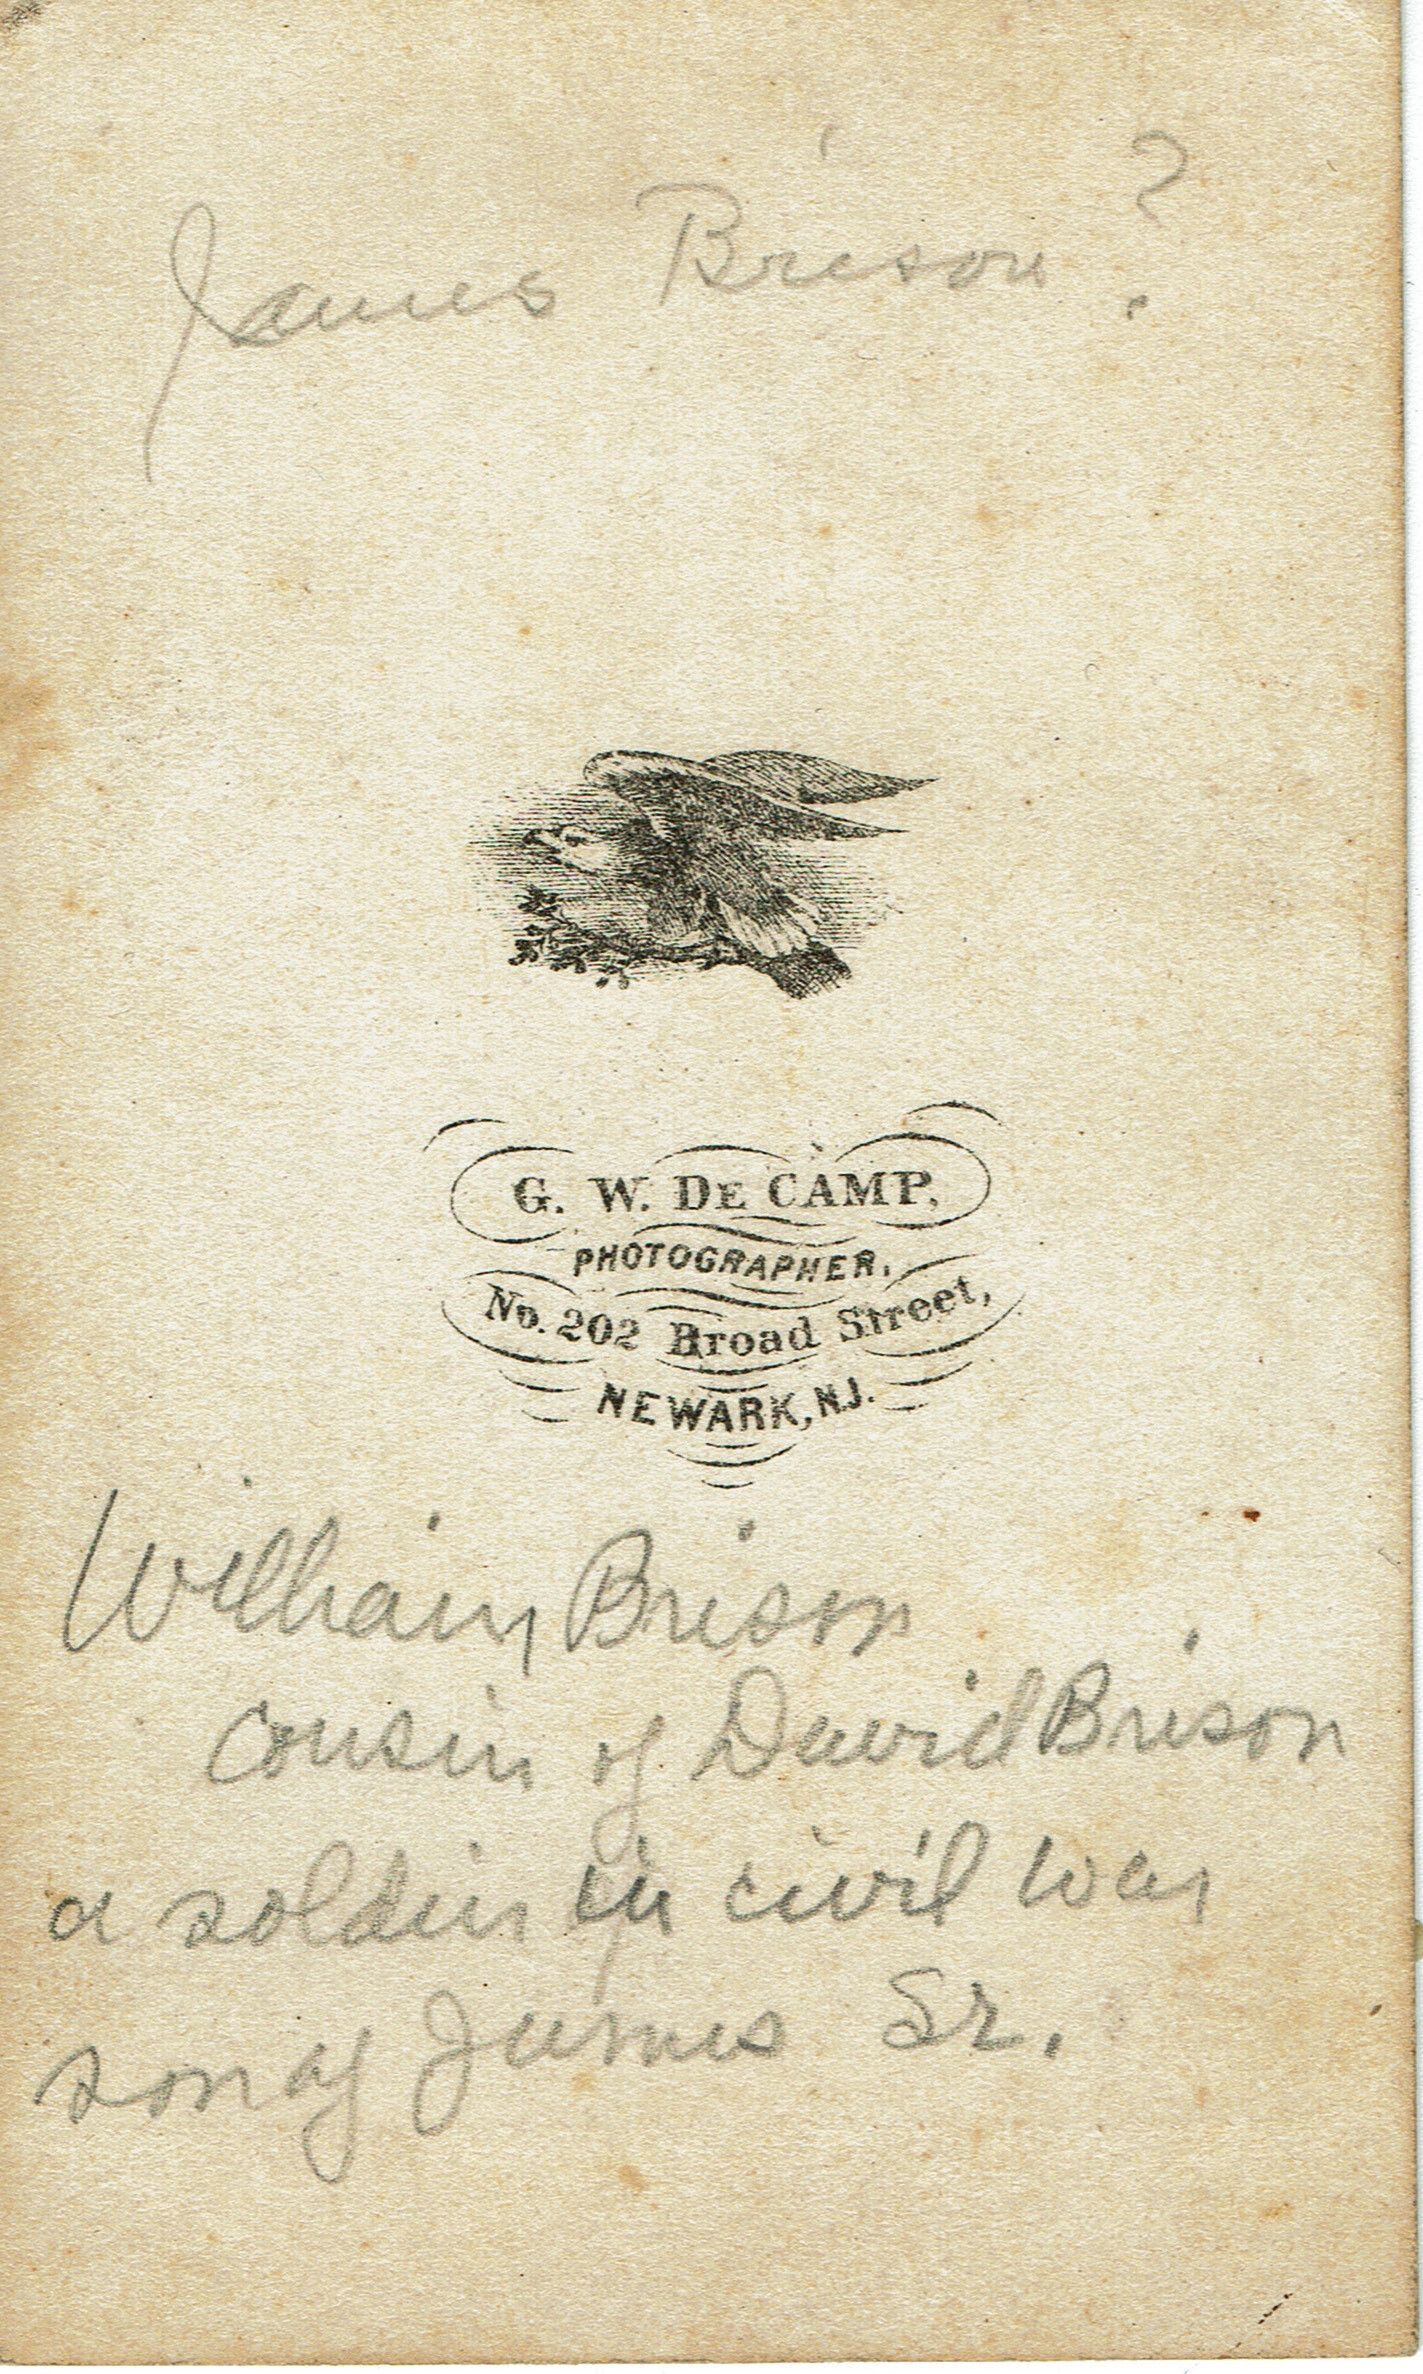 James Brison ?
G. W. DE CAMP,
PHOTOGRAPHER,
No. 202 Broad Street,
NEWARK, N.J.
William Brison
cousin of David Brison
a soldier in civil war
son of James Sr.